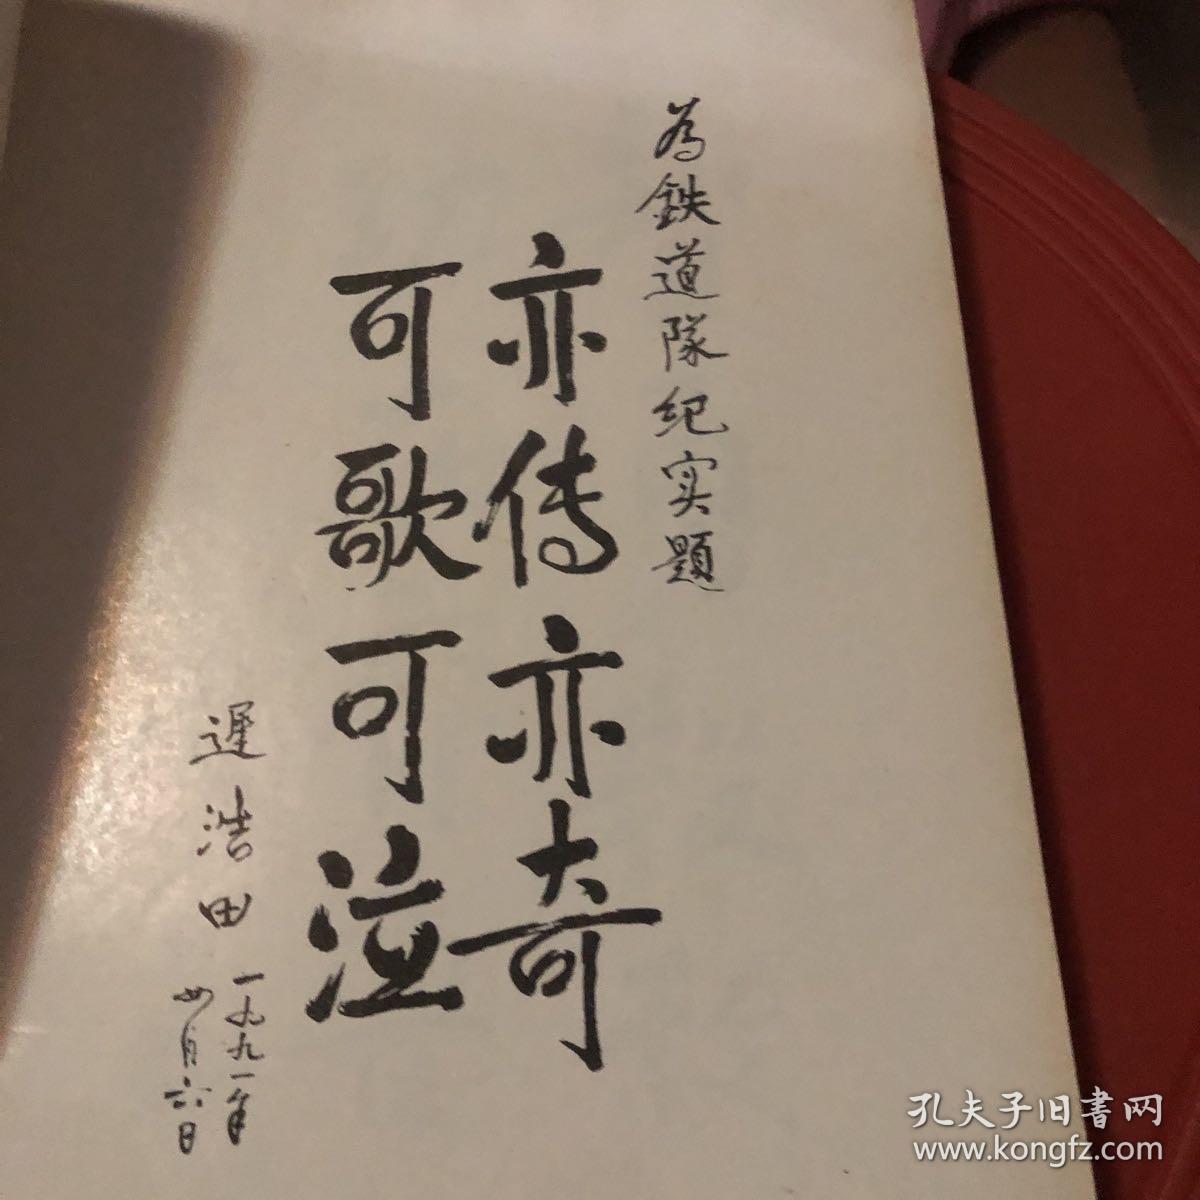 为鉄道隊纪实题
亦传亦奇
可歌可泣
遲浩田
一九九一年
四月六日
孔夫子旧書网
www.kongfz.com